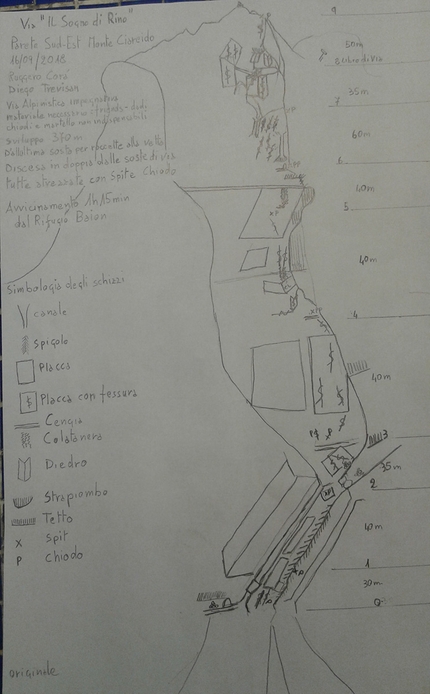 Via "Il Sogno di Rino"
Parete Sud-Est Monte Cimone
16/09/2018
Diego Trevisan
Via Alpinistica impegnativa
materiale necessario: friends - dadi
chiodi e martello non indispensabili
sviluppo 370 m
Dall'ultima sosta per roccette alla vetta
Discesa in doppia dalle soste di via
tutte attrezzate con Spit e Chiodo
Avvicinamento 1h 15 min
dal Rifugio Baion
Simbologia degli schizzi
canale
Spigolo
Placca
Placca con fessura
Cengia
Diedro
Strapiombo
Tetto
x Spit
P Chiodo
originale
50m
35m
7
60m
6
40m
5
40m
4
40m
3
35m
2
40m
1
30m
0